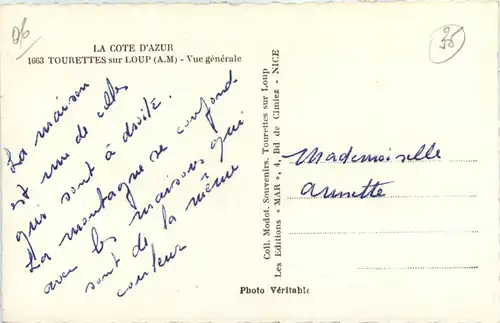 LA COTE D'AZUR
1663 TOURETTES sur LOUP (A.M) - Vue générale
La maison
est une de celles
qui sont à droite.
La montagne se confond
avec les maisons qui
sont de la même
couleur
Coll. Modot. Souvenirs. Touretes sur Loup
Les Editions " MAR ", 4, Bd de Cimiez - NICE
Mademoiselle
Annette
Photo Véritable